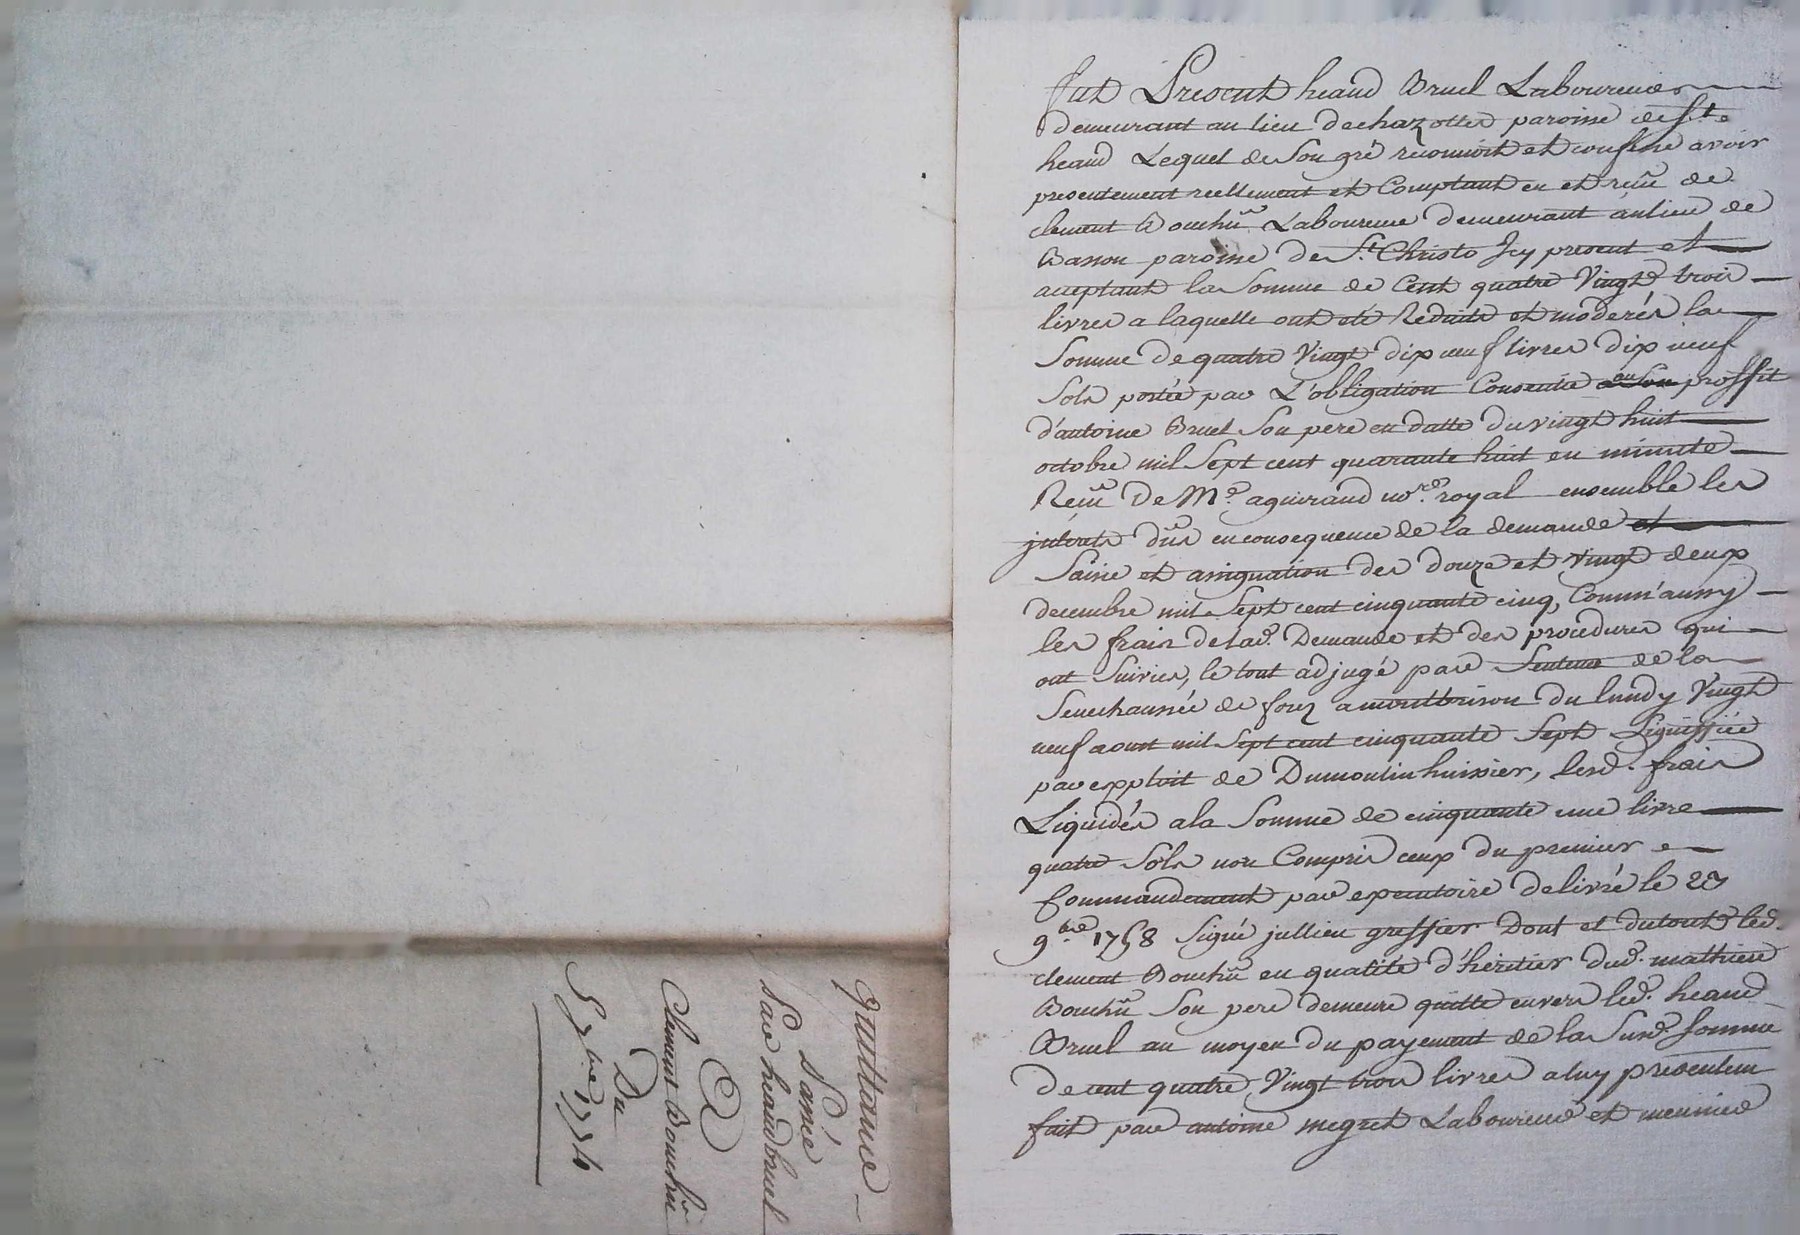 fut Present heand Bruel Laboureur
demeurant au lieu dechazottes paroisse de St
heand Lequel de Son gré reconnoit et confesse avoir
presentement reellement et Comptant eu et reçu de
clement Bouchū Laboureur demeurant aulieu de
Basson paroisse de St. Christo Jcy present et
acceptant la Somme de Cent quatre Vingt trois
livres a laquelle ont eté Reduite et moderés la
Somme de quatre Vingt dix neuf livres dix neuf
Sols portée par L'obligation Consentie au Son proffit
d'antoine Bruel Son pere en datte du vingt huit
octobre mil Sept cent quarante huit en minute
Reçue De Me. aguirand nore. royal ensemble les
jnterets dus en consequence de la demande et
Saisie et assignation des douze et vingt deux
decembre mil Sept cent cinquante cinq, Comm'aussy
les frais de lad. Demande et des procedures qui
ont Suivies, le tout adjugé par Sentence de la
Senechaussée de forez a montbrison du lundy Vingt
neuf aoust mil Sept cent cinquante Sept Signiffiée
par exploit de Dumoulin huissier, lesd. frais
Liquidés a la Somme de cinquante une livre
quatre Sols non Compris ceux du premier
Commandement par executoire delivré le 23
9bre 1758 Signé jullien greffier Dont et du tout led.
clement Bouchū en qualité d'heritier dud. mathieu
Bouchū Son pere demeure quitte envers led. heand
Bruel au moyen du payement de la Susd. Somme
de cent quatre Vingt trois livres a luy presentem
fait par antoine megret Laboureur et meunier
quittance
Passée
Par heand bruel
A
Clement Bouchu
Du